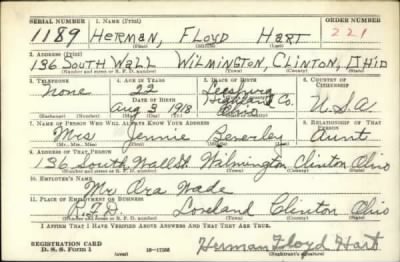 SERIAL NUMBER 1. NAME (Print) ORDER NUMBER
1189 HERMAN, FLOYD HART 221
(First) (Middle) (Last)
2. ADDRESS (Print)
136 SOUTH WALL WILMINGTON, CLINTON, OHIO
(Number and street or R. F. D. number) (Town) (County) (State)
3. TELEPHONE 4. AGE IN YEARS 5. PLACE OF BIRTH 6. COUNTRY OF CITIZENSHIP
None 22 Leesburg
DATE OF BIRTH Highland Co.
Aug 1918 Ohio U.S.A.
(Exchange) (Number) (Mo.) (Day) (Yr.)
7. NAME OF PERSON WHO WILL ALWAYS KNOW YOUR ADDRESS 8. RELATIONSHIP OF THAT PERSON
Mrs Jennie Beverley Aunt
(Mr., Mrs., Miss) (First) (Middle) (Last)
9. ADDRESS OF THAT PERSON
136 South Wall St Wilmington Clinton Ohio
(Number and street or R. F. D. number) (Town) (County) (State)
10. EMPLOYER'S NAME
Mr Ora Wade
11. PLACE OF EMPLOYMENT OR BUSINESS
R.F.D. Loveland Clinton Ohio
(Number and street or R. F. D. number) (Town) (County) (State)
I AFFIRM THAT I HAVE VERIFIED ABOVE ANSWERS AND THAT THEY ARE TRUE.
REGISTRATION CARD
D. S. S. Form 1 16—17105 Herman Floyd Hart
(over) (Registrant's signature)